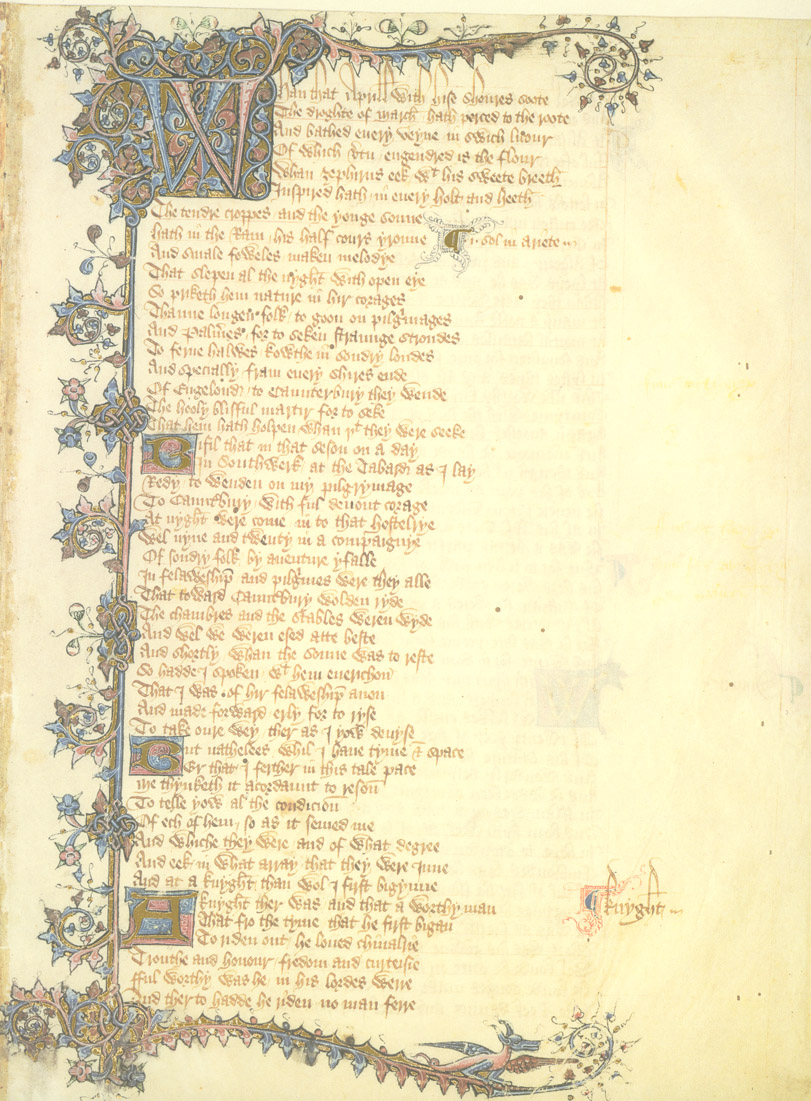 Whan that Aprill with hise shoures soote
The droghte of march hath perced to the roote
And bathed euery veyne in swich licour
Of which vtu engendred is the flour
Whan zephirus eek wt his sweete breeth
Inspired hath in euery holt and heeth
The tendre croppes and the yonge sonne
hath in the Ram his half cours yronne
i. sol in ariete
And smale foweles maken melodye
That slepen al the nyght with open eye
So priketh hem nature in hir corages
Thanne longen folk to goon on pilgrimages
And Palmeres for to seken straunge strondes
To ferne halwes kowthe in sondry londes
And specially fram euery shires ende
Of Engelond to Caunterbury they wende
The hooly blisful martir for to seke
That hem hath holpen whan yt they were seeke
Bifil that in that seson on a day
In Southwerk at the Tabard as I lay
Redy to wenden on my pilgrymage
To Caunterbury with ful deuout corage
At nyght were come in to that hostelrye
Wel nyne and twenty in a compaignye
Of sondry folk by auenture yfalle
In felaweshipe and pilgrimes were they alle
That toward Caunterbury wolden ryde
The chambres and the stables weren wyde
And wel we weren esed atte beste
And shortly whan the sonne was to reste
So hadde I spoken wt hem euerichon
That I was of hir felaweshipe anon
And made forward erly for to ryse
To take oure wey ther as I yow deuyse
But nathelees whil I haue tyme & space
Er that I ferther in this tale pace
me thynketh it acordaunt to reson
To telle yow al the condicion
Of ech of hem so as it semed me
And whiche they were and of what degree
And eek in what array that they were Inne
And at a knyght than wol I first bigynne
A knyght ther was and that a worthy man
knyght
That fro the tyme that he first bigan
To riden out he loued chiualrie
Trouthe and honour fredom and curteisie
fful worthy was he in his lordes werre
And ther to hadde he riden no man ferre